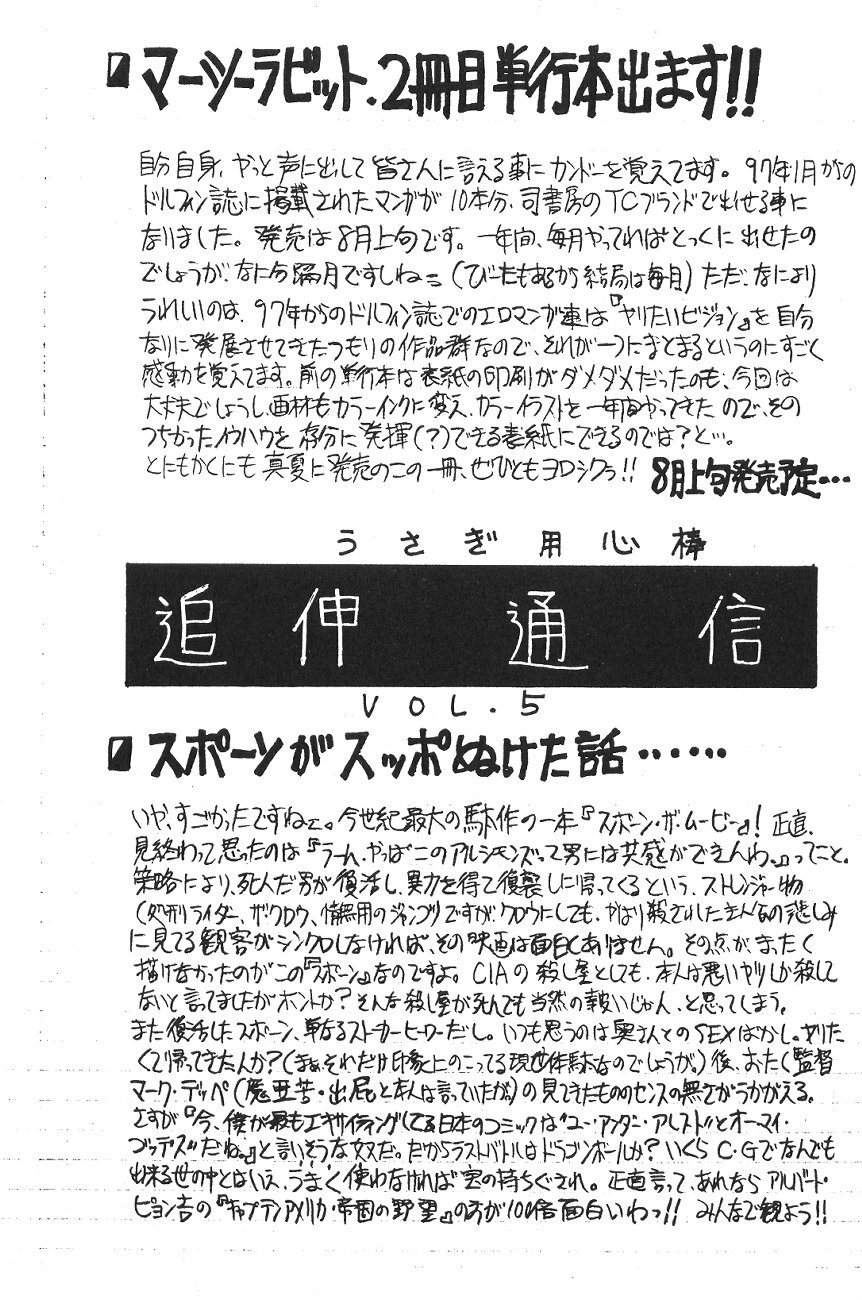 マーシーラビット.2冊目単行本出ます!!
自分自身、やっと声に出して皆さんに言える事にカンドーを覚えてます。97年1月からの
ドルフィン誌に掲載されたマンガが10本分、司書房のTCブランドで出せる事に
なりました。発売は8月上旬です。一年間、毎月やってればとっくに出せたの
でしょうが、なにぶん隔月ですしねー(びーたもあるから結局は毎月)ただ、なにより
うれしいのは、97年からのドルフィン誌でのエロマンガ達は『ヤリたいビジョン』を自分
なりに発展させてきたつもりの作品群なので、それが一つにまとまるというのにすごく
感動を覚えてます。前の単行本は表紙の印刷がダメダメだったのも、今回は
大丈夫でしょうし、画材もカラーインクに変え、カラーイラストを一年間やってきたので、その
つちかったノウハウを存分に発揮(?)できる表紙にできるのでは?と…。
とにもかくにも真夏に発売のこの一冊、ぜひともヨロシクゥ!! 8月上旬発売予定…
うさぎ用心棒
追伸 通信
VOL.5
スポーンがスッポぬけた話……
いや、すごかったですねェ。今世紀最大の駄作の一本『スポーン・ザ・ムービー』! 正直、
見終わって思ったのは『うーム、やっぱこのアルシモンズって男には共感ができんわ。』ってこと。
策略により、死んだ男が復活し、暴力を得て復讐しに帰ってくるという、ストレンジャー物
(処刑ライダー、ザ・クロウ、情無用のジャンゴ)ですがクロウにしても、やはり殺された主人公の悲しみ
に見てる観客がシンクロしなければ、その映画は面白くありません。その点が、まったく
描けなかったのがこの『スポーン』なのですよ。CIAの殺し屋としても、本人は悪いヤツしか殺して
ないと言ってましたがホントか? そんな殺し屋が死んでも当然の報いじゃん、と思ってしまう。
また復活したスポーン、単なるストーカーヒーローだし。いつも思うのは奥さんとのSEXばかし。ヤリた
くて帰ってきた人か?(まぁそれだけ印象上のこってる現世体験なのでしょうが)後、おた(監督
マーク・デッペ(魔亜苦・出屁と本人は言っていたが)の見てきたもののセンスの無さがうかがえる。
さすが『今、僕が最もエキサイティングしてる日本のコミックは"ユー・アンダー・アレスト"とオーマイ・
ゴッデス"だね。』と言いそうな奴だ。だからラストバトルはドラゴンボールか? いくらC・Gでなんでも
出来る世の中とはいえ、うまく使わなければ宝の持ちぐされ。正直言って、あれならアルバート・
ピョン吉の『キャプテンアメリカ・帝国の野望』の方が100倍面白いわっ!! みんなで観よう!!